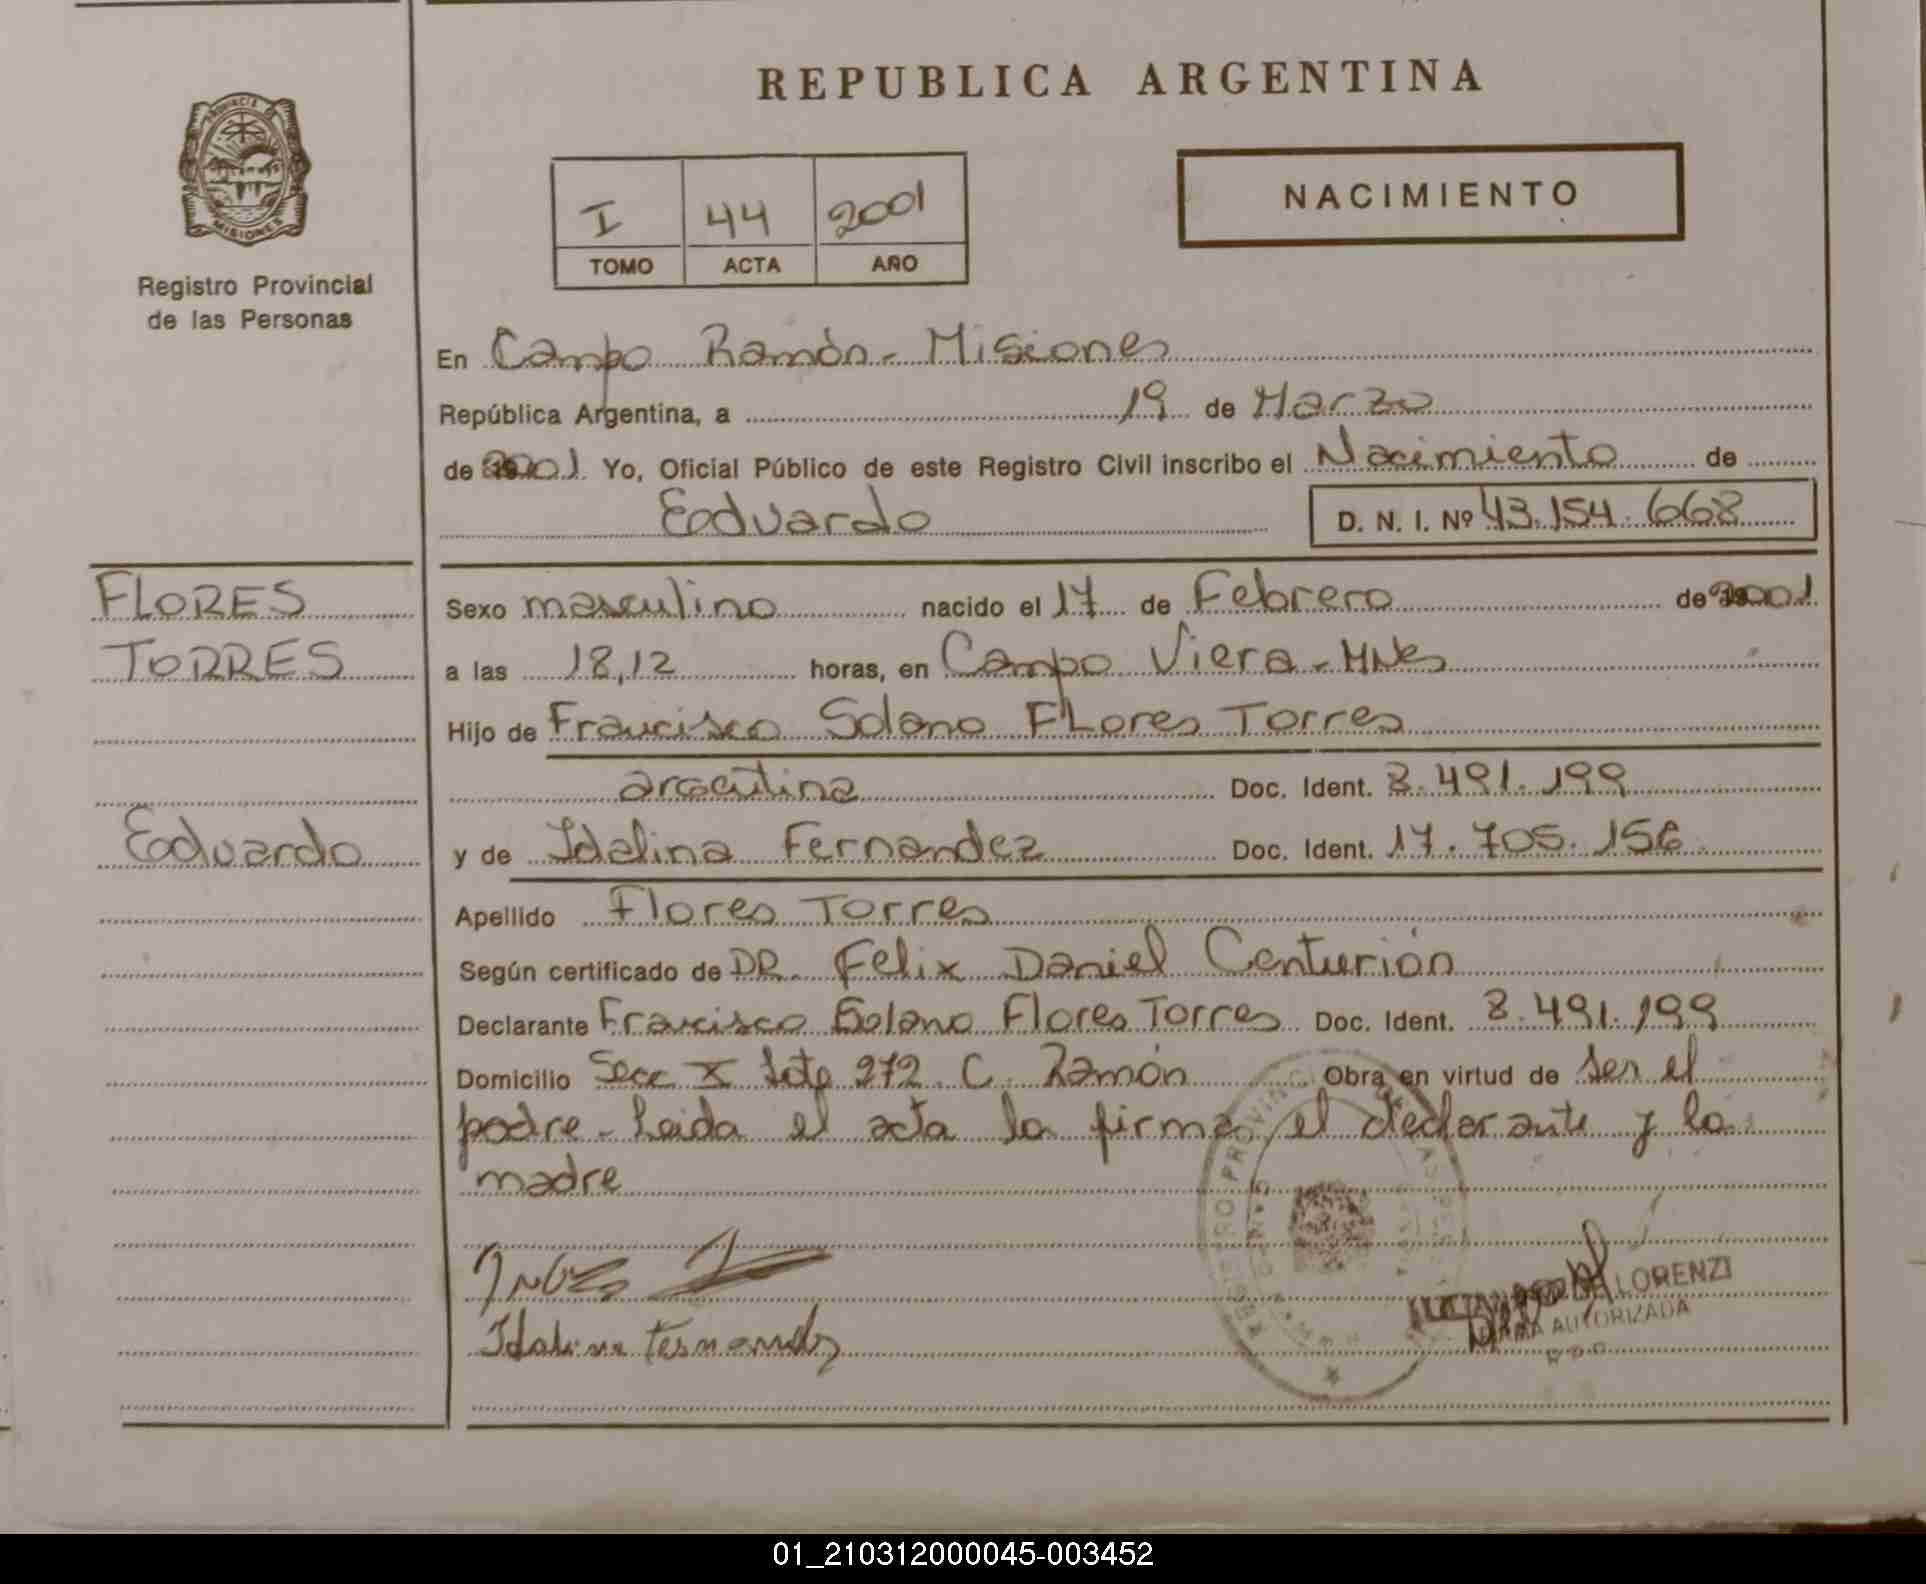 REPUBLICA ARGENTINA
PROVINCIA DE
MISIONES
Registro Provincial
de las Personas
I 44 2001
TOMO ACTA AÑO
NACIMIENTO
En Campo Ramón - Misiones
República Argentina, a 19 de Marzo
de 2001 Yo, Oficial Público de este Registro Civil inscribo el Nacimiento de
Eduardo
D. N. I. Nº 43.154.668
FLORES
TORRES
Eduardo
Sexo masculino nacido el 17 de Febrero de 2001
a las 18,12 horas, en Campo Viera - MNes
Hijo de Francisco Solano Flores Torres
argentina Doc. Ident. 8.491.199
y de Idalina Fernandez Doc. Ident. 17.705.156
Apellido Flores Torres
Según certificado de DR. Felix Daniel Centurión
Declarante Francisco Solano Flores Torres Doc. Ident. 8.491.199
Domicilio Secc X Lote 272 C. Ramón Obra en virtud de ser el
padre - Leida el acta la firma el declarante y la
madre
Idalina Fernandez
DE LORENZI
FIRMA AUTORIZADA
01_210312000045-003452